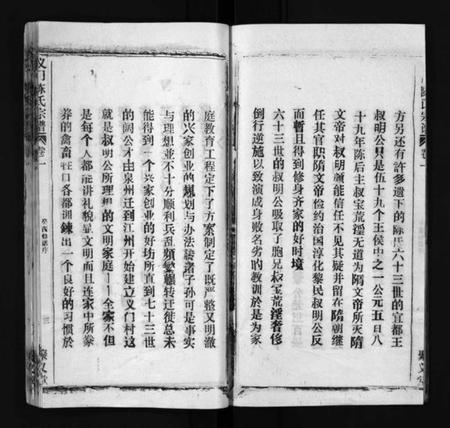 方另还有許多遗下的陈氏六十三世的宜都王
叔明公只是伍十九个王侯中之一公元五白八
十九年陈后主叔宝荒淫无道为隋文帝所灭隋
文帝对叔明頗能信任不见其疑并留在隋朝继
任其官职隋文帝倹约治国淳化黎民叔明公反
而暫且得到修身齐家的好时境
六十三世的叔明公吸取了胞兄叔宝荒淫奢侈
倒行逆施以致演成身敗名劣的敎訓於是为家
义门陈氏宗譜
卷一
庭教育工程定下了方案制定了既严整又明澈
的兴家创业的规划与办法转諸子孙可是事实
与理想並不十分顺利兵乱頻繁輾转迁徙总未
能得到一个兴家创业的好坊所直到七十三世
的阔公才由泉州迁到江州开始建立义门村這
就是叔明公所理想的文明家庭——全家不但
是每个人都能讲礼貌显文明而且连家中所豢
养的禽畜牲口各都训鍊出一个良好的习慣於
聚义堂